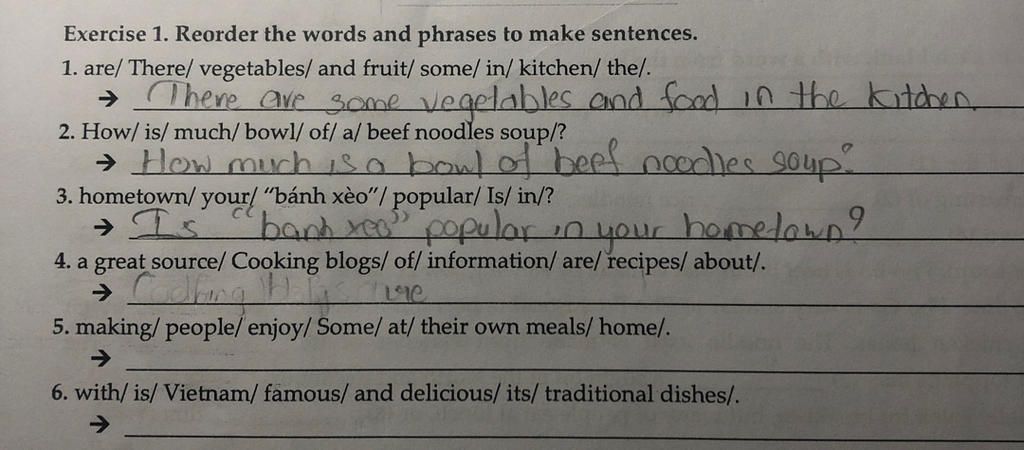 Exercise 1. Reorder the words and phrases to make sentences.
1. are/ There/ vegetables/ and fruit/ some/ in/ kitchen/ the/.
→ There are some vegetables and food in the kitchen.
2. How/ is/ much/ bowl/ of/ a/ beef noodles soup/?
→ How much is a bowl of beef noodles soup?
3. hometown/ your/ “bánh xèo”/ popular/ Is/ in/?
→ Is “banh xeo” popular in your hometown?
4. a great source/ Cooking blogs/ of/ information/ are/ recipes/ about/.
→
5. making/ people/ enjoy/ Some/ at/ their own meals/ home/.
→
6. with/ is/ Vietnam/ famous/ and delicious/ its/ traditional dishes/.
→